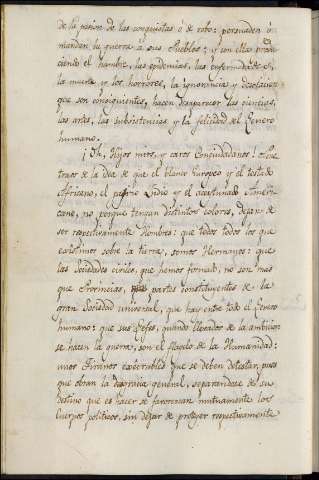 de la pasion de las conquistas ó de robo: persuaden ó
mandan la guerra a sus Pueblos: y con ella produ-
ciendo el hambre, las epidemias, las enfermedades,
la muerte y los horrores, la ignorancia y desolacion
que son consiguientes, hacen desaparecer las ciencias,
las artes, las subsistencias y la felicidad del Genero
humano.
¡Oh, Hijos mios, y caros Conciudadanos!
traos de la idea de que el blanco Europeo y el tostado
Africano, el Indio y el aceitunado Ameri-
cano, no porque tengan distintos colores, dejan de
ser respectivamente Hombres: que todos todos los que
existimos sobre la tierra, somos Hermanos: que
las Sociedades civiles, que hemos formado, no son mas
que Provincias, partes constituyentes de la
gran Sociedad universal, que hay entre todo el Genero
humano: que sus Gefes, quando llevados de la ambicion
se hacen la guerra, son el flagelo de la Humanidad:
unos Tiranos execrables que se deben detestar, pues
que obran la desgracia general, separandose de su
destino que es hacer se favorezcan mutuamente los
Cuerpos politicos, sin dejar de proteger respectivamente